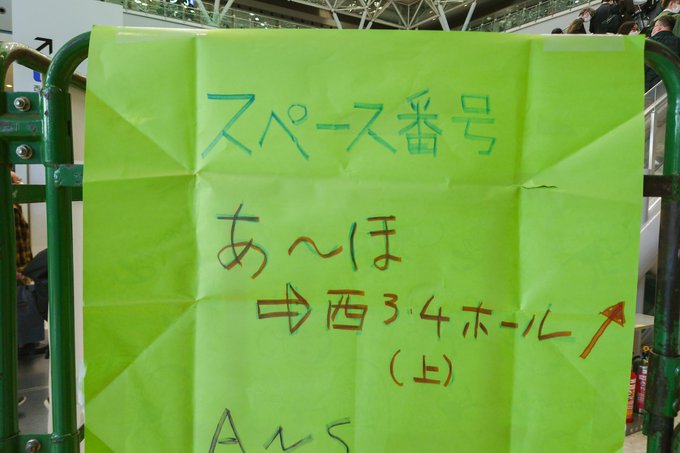 スペース番号
あ〜ほ
⇨西3・4ホール↗
(上)
A〜S